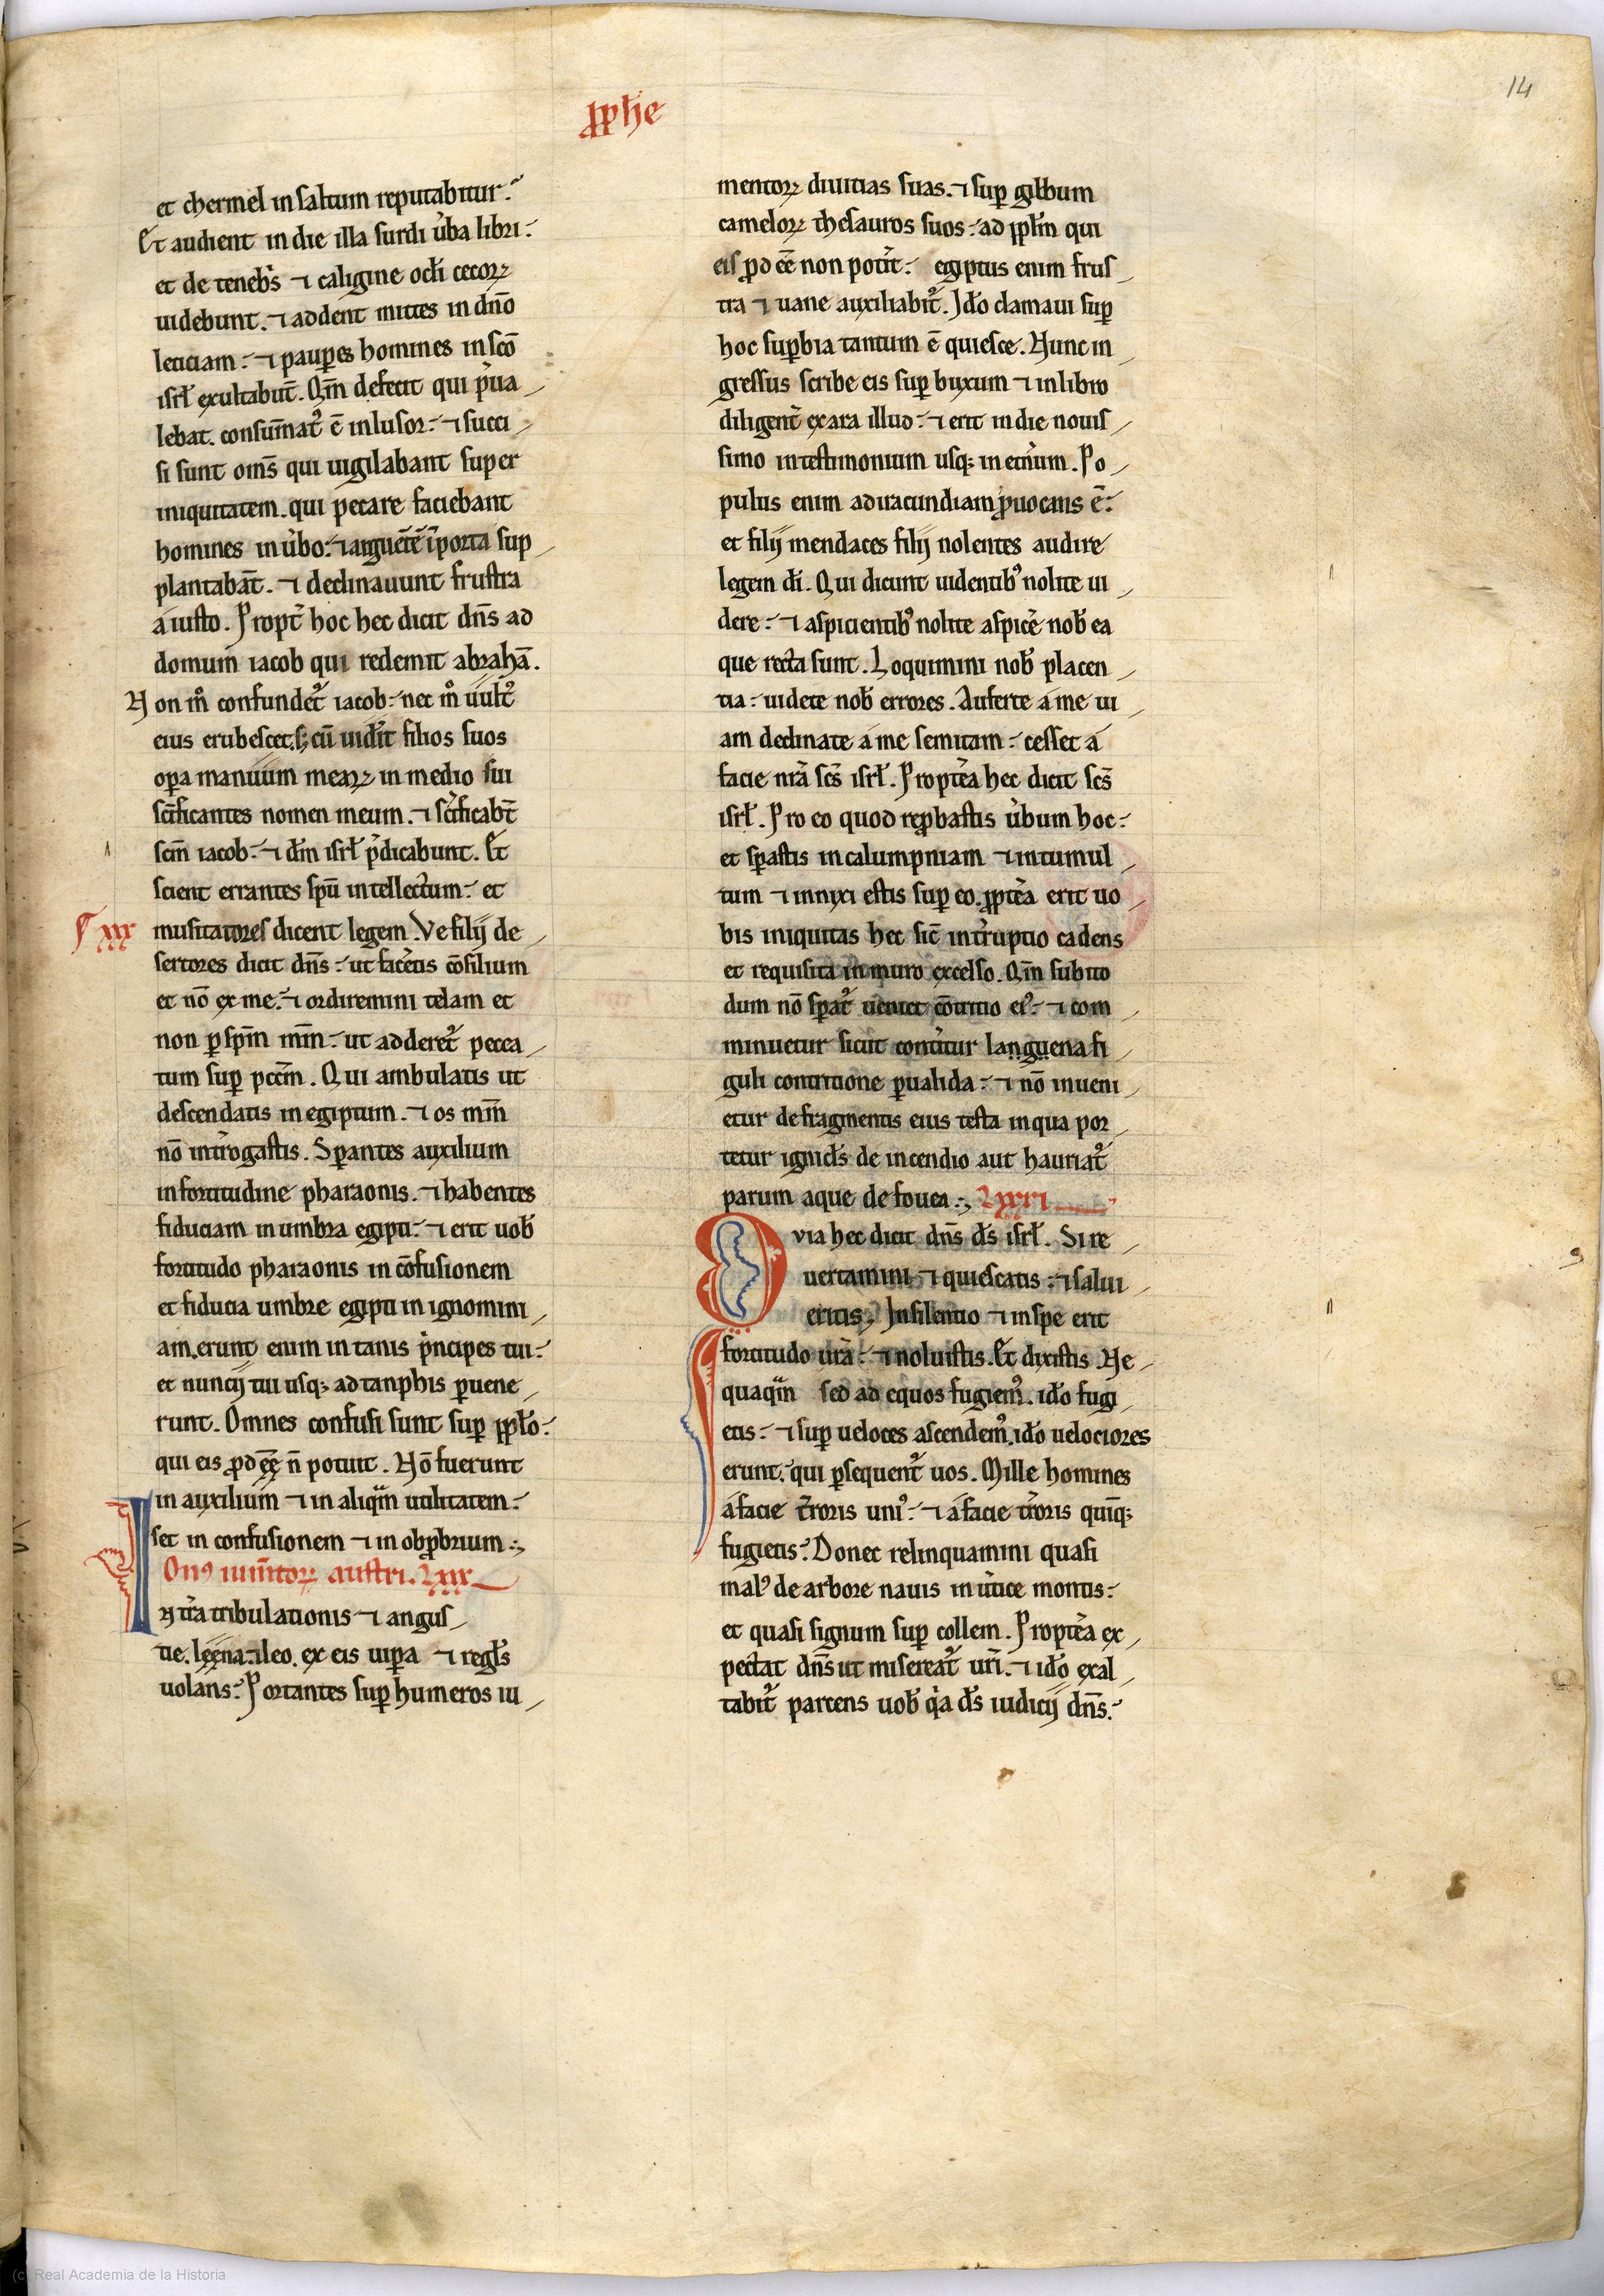 ꝓphe
14
et chermel in saltum reputabitur.
Et audient in die illa surdi u̓ba libri.
et de teneb̓s ⁊ caligine ocl̓i cecoꝝ
uidebunt. ⁊ addent mites in dn̄o
leticiam. ⁊ pauꝑes homines in sc̄o
isrl̓ exultabūt. Qm̄ defecit qui p̓ua
lebat. consūmat᷒ ē inlusor. ⁊ succi
si sunt om̄s qui uigilabant super
iniquitatem. qui peccare faciebant
homines in u̓bo. ⁊ arguētē ī porta sup
plantabāt. ⁊ declinauunt frustra
a iusto. Propt̓ hoc hec dicit dn̄s ad
domum iacob qui redemit abrahā.
Non m̊ confundet᷒ iacob. nec m̊ uult᷒
eius erubescet. sꝫ cū uid̓it filios suos
oꝑa manuum meaꝝ in medio sui
sc̄ificantes nomen meum. ⁊ sc̄ificab̄t
scm̄ iacob. ⁊ dm̄ isrl̓ p̓dicabunt. Et
scient errantes spū intellectum. et
xxx musitatores dicent legem. Ve filij de
sertores dicit dn̄s. ut fac̓etis cōsilium
et nō ex me. ⁊ ordiremini telam et
non ꝑ spm̄ mm̄. ut adderet᷒ pecca
tum suꝑ pcc̄m. Qui ambulatis ut
descendatis in egiptum. ⁊ os mm̄
nō int̓rogastis. Sꝑantes auxilium
in fortitudine pharaonis. ⁊ habentes
fiduciam in umbra egipti. ⁊ erit uob̓
fortitudo pharaonis in cōfusionem
et fiducia umbre egipti in ignomini
am. erunt enim in tanis p̓ncipes tui.
et nuncij tui usqꝫ ad tanphis ꝑuene
runt. Omnes confusi sunt suꝑ ppl̓o.
qui eis ꝓdeēē n̄ potuit. Nō fuerunt
in auxilium ⁊ in aliqm̄ utilitatem.
set in confusionem ⁊ in obꝓbrium.
On᷒ ium̄toꝝ austri. xxx
In tr̓a tribulationis ⁊ angus
tie. leena ⁊ leo. ex eis uiꝑa ⁊ regl̓s
uolans. Portantes suꝑ humeros iu
mentoꝝ diuitias suas. ⁊ suꝑ gibbum
cameloꝝ thesauros suos. ad ppl̓m qui
eis ꝓdeēe non pot̓it. egiptus enim frus
tra ⁊ uane auxiliabit᷒. Ido̓ clamaui suꝑ
hoc suꝑbia tantum ē quiesce. Nunc in
gressus scribe eis suꝑ buxum ⁊ in libro
diligent̓ exara illud. ⁊ erit in die nouis
simo in testimonium usqꝫ in et̓num. Po
pulus enim ad iracundiam ꝓuocans ē.
et filij mendaces filij nolentes audire
legem di̓. Qui dicunt uidentib᷒ nolite ui
dere. ⁊ aspicientib᷒ nolite aspic̓e nob̓ ea
que recta sunt. Loquimini nob̓ placen
tia. uidete nob̓ errores. Auferte a me ui
am declinate a me semitam. cesset a
facie nr̄a scs̄ isrl̓. Propt̓ea hec dicit scs̄
isrl̓. Pro eo quod reꝓbastis u̓bum hoc.
et sꝑastis in calumpniam ⁊ in tumul
tum ⁊ innixi estis suꝑ eo. ꝓpt̓ea erit uo
bis iniquitas hec sic̄ int̓ruptio cadens
et requisita in muro excelso. Qm̄ subito
dum nō sꝑat᷒ ueniet cōtritio ei᷒. ⁊ com
minuetur sicut cont̓itur languena fi
guli contritione ꝑualida. ⁊ nō inueni
etur de fragmentis eius testa in qua por
tetur ignicl̓s de incendio aut hauriat᷒
parum aque de fouea. xxxi
Qvia hec dicit dn̄s ds̄ isrl̓. Si re
uertamini ⁊ quiescatis. ⁊ salui
eritis. In silentio ⁊ in spe erit
fortitudo ur̄a. ⁊ noluistis. Et dixistis. Ne
quaqm̄ sed ad equos fugiem᷒. ido̓ fugi
etis. ⁊ suꝑ ueloces ascendem᷒. ido̓ uelociores
erunt. qui ꝑsequent᷒ uos. Mille homines
a facie t̓roris uni᷒. ⁊ a facie t̓roris quiqꝫ
fugietis. Donec relinquamini quasi
mal᷒ de arbore nauis in u̓tice montis.
et quasi signum suꝑ collem. Propt̓ea ex
pectat dn̄s ut misereat᷒ uri̓. ⁊ ido̓ exal
tabit᷒ parcens uob̓ q̓a ds̄ iudicij dn̄s.
(c) Real Academia de la Historia